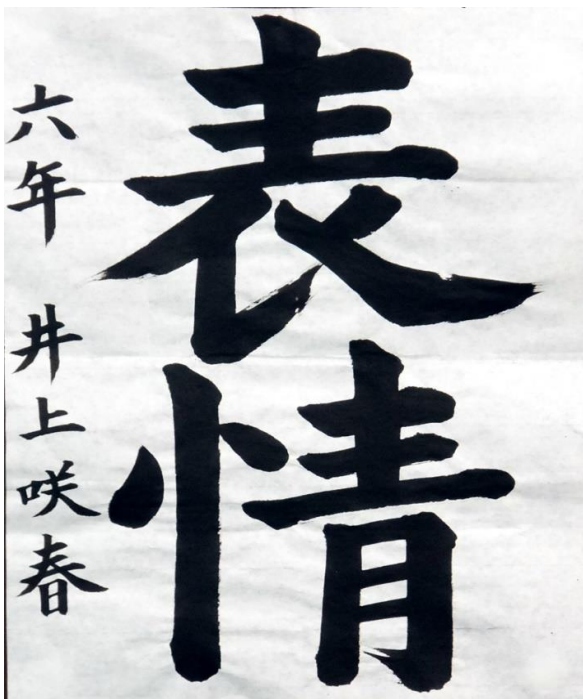 表情
六年 井上咲春